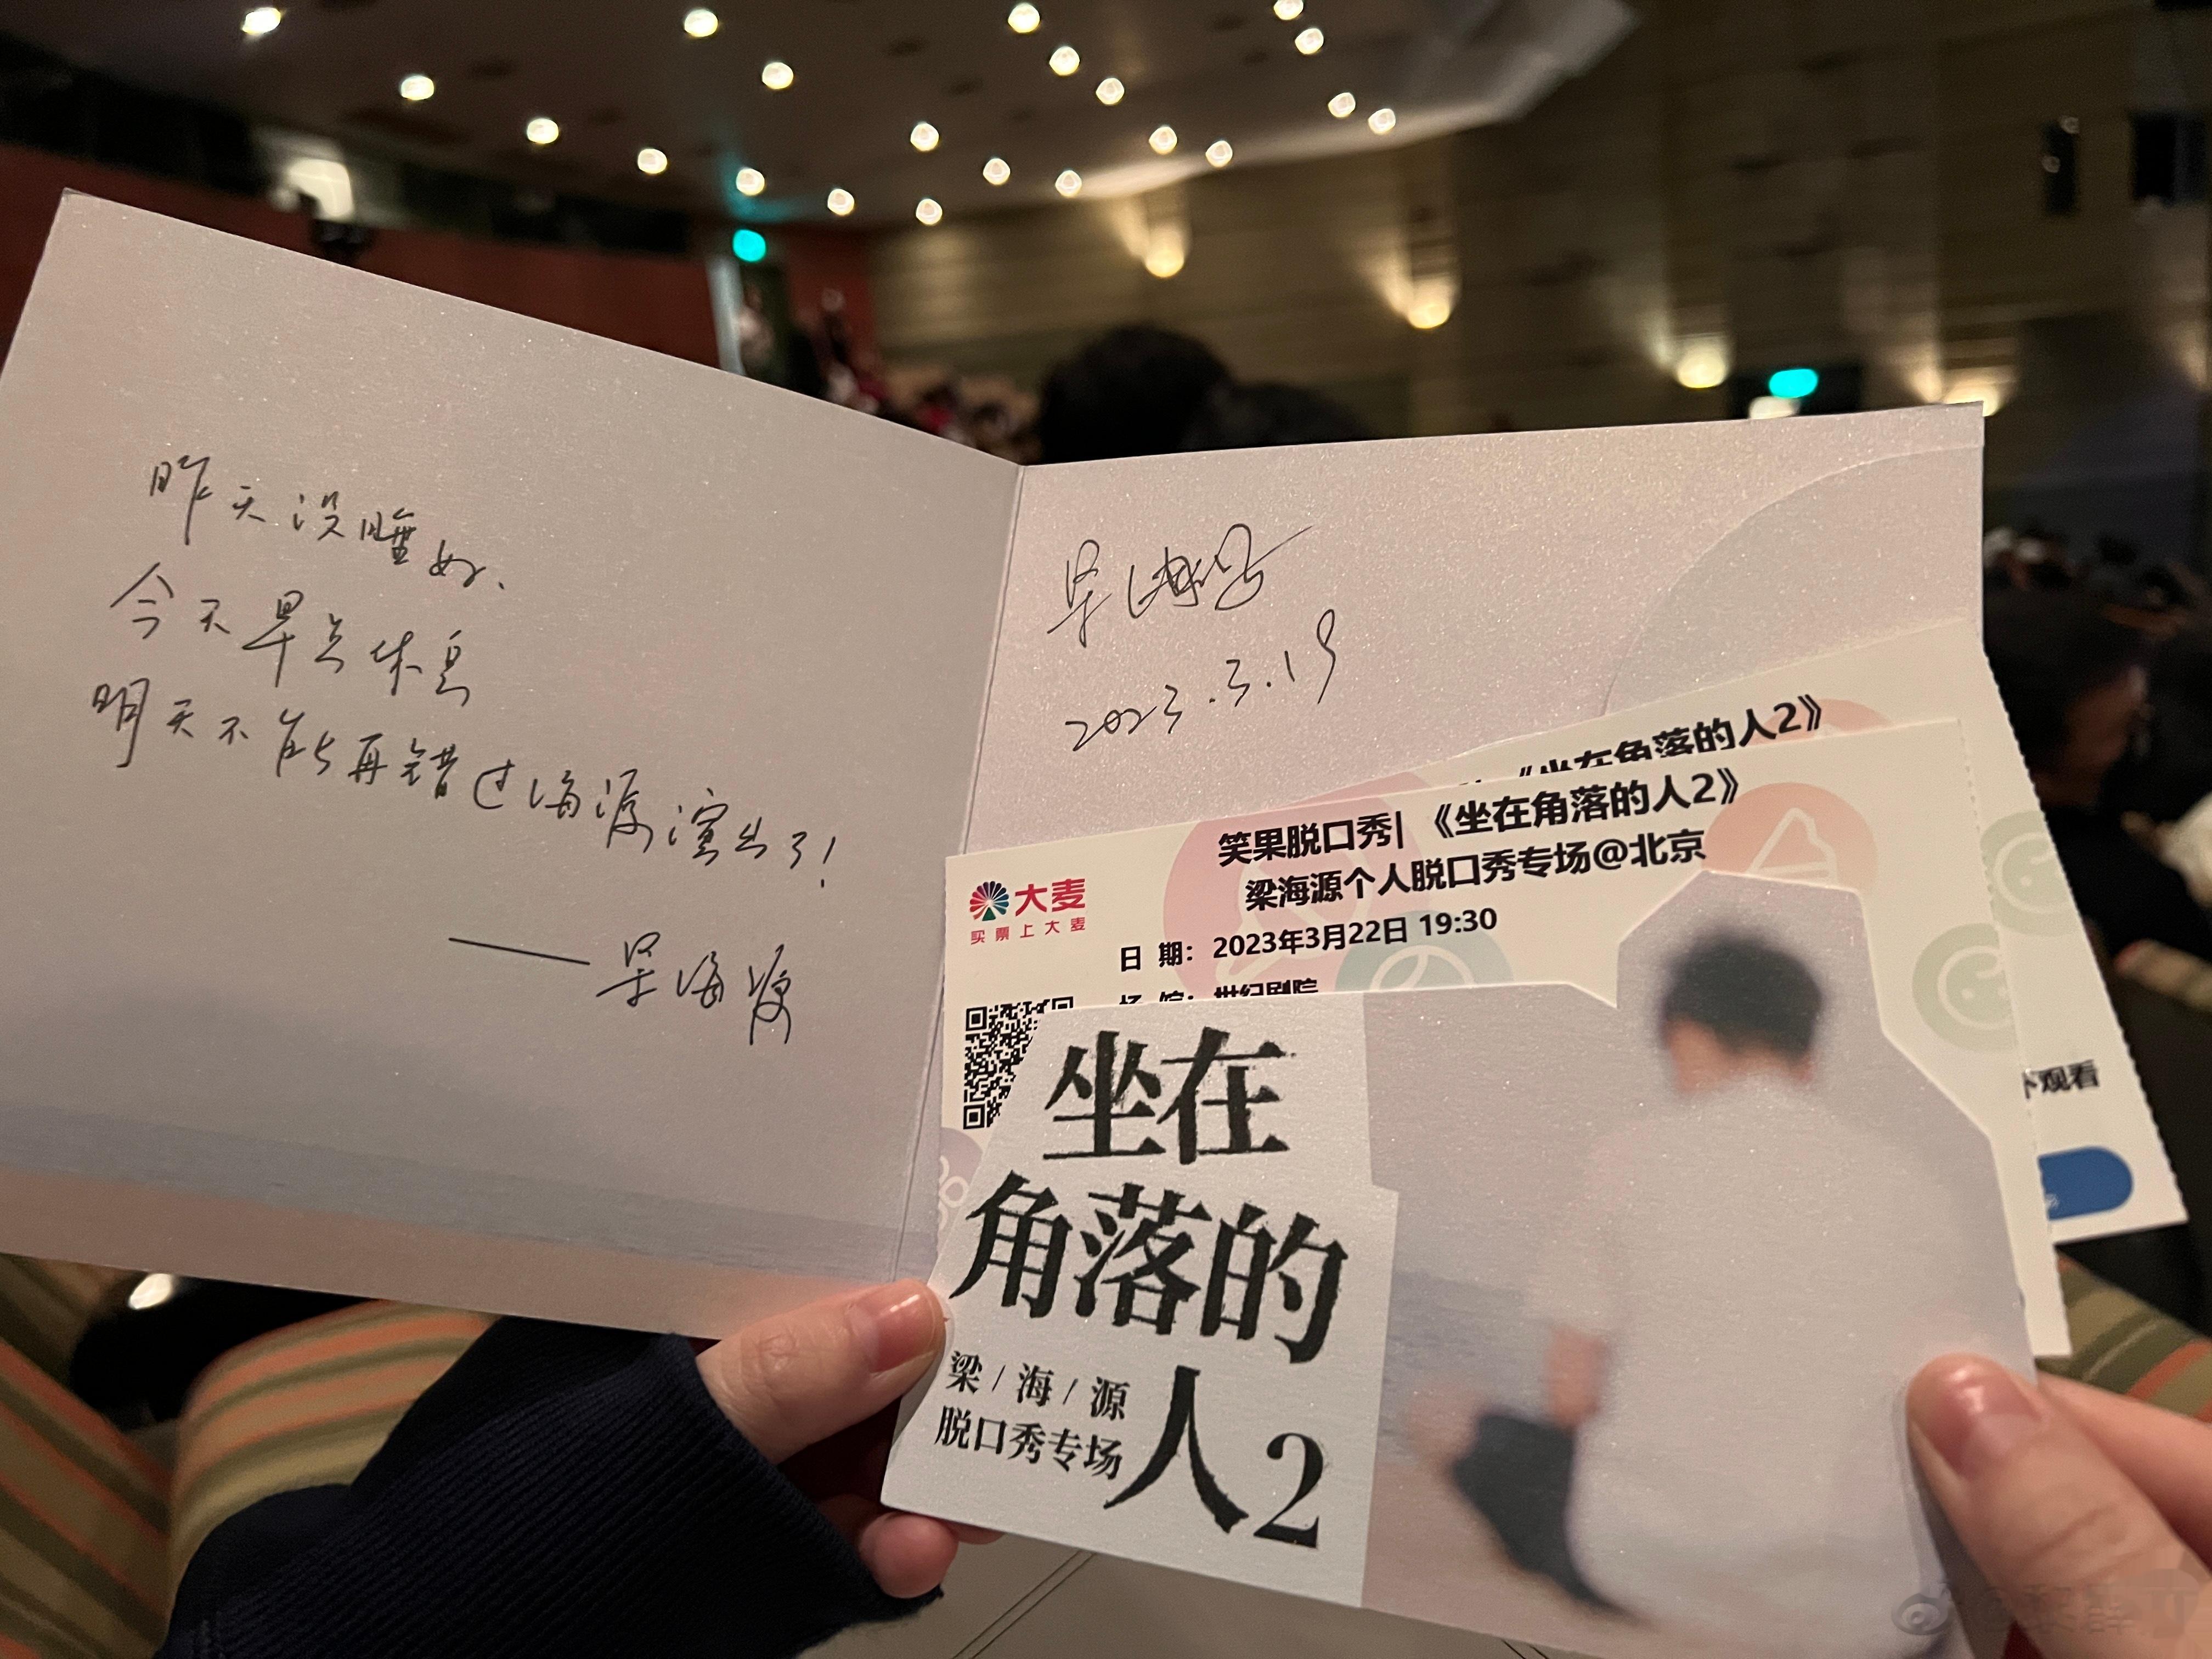 昨天没睡好、
今天早点休息
明天不能再错过海源演出了！
——呆海源
2023.3.19
《坐在角落的人2》
笑果脱口秀|《坐在角落的人2》
梁海源个人脱口秀专场@北京
大麦
买票上大麦
日 期： 2023年3月22日 19:30
场 馆： 世纪剧院
观看
坐在
角落的
人2
梁/海/源
脱口秀专场